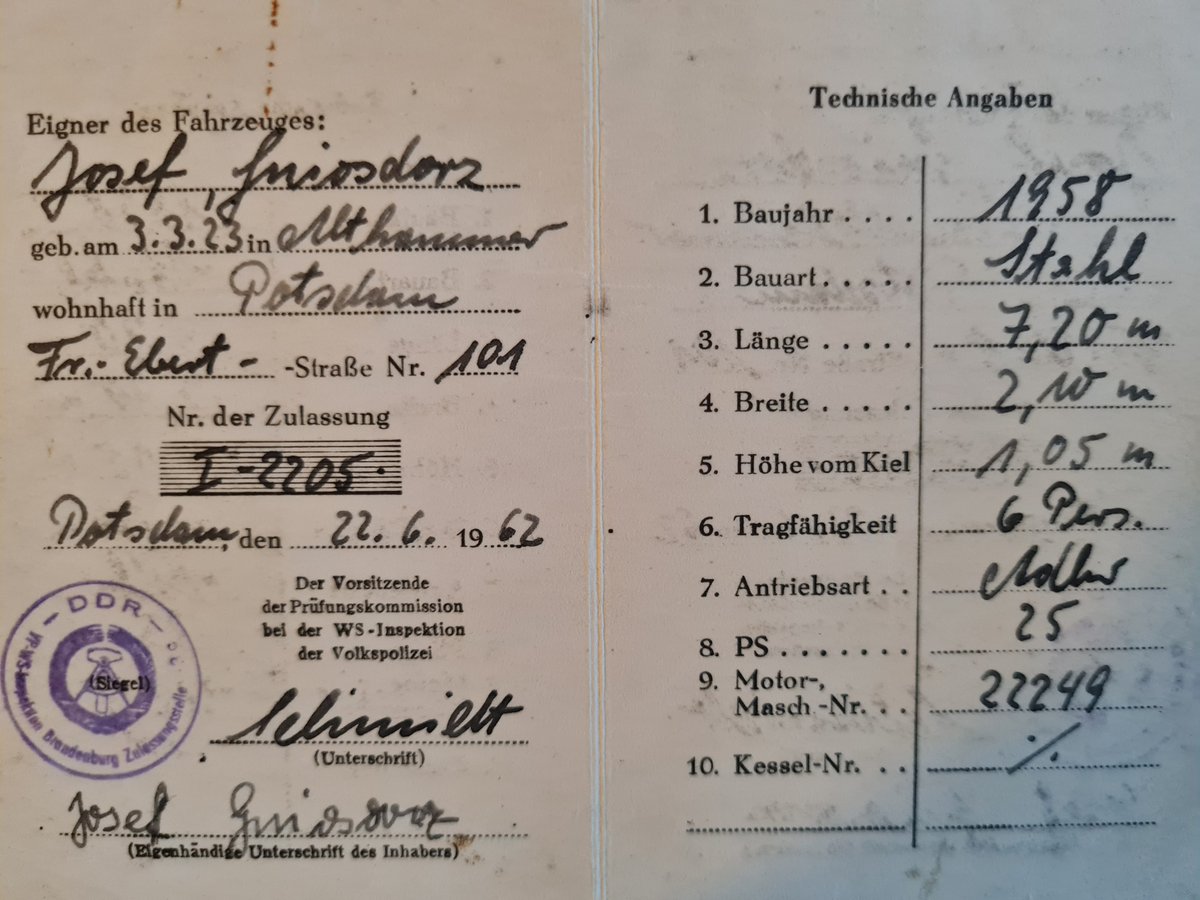 Eigner des Fahrzeuges:
Josef, Gniosdorz
geb. am 3.3.23 in Althammer
wohnhaft in Potsdam
Fr.-Ebert- -Straße Nr. 101
Nr. der Zulassung
I-2205.
Potsdam, den 22.6. 1962
Der Vorsitzende
der Prüfungskommission
bei der WS-Inspektion
der Volkspolizei
- DDR -
(Siegel)
VP-WS-Inspektion Brandenburg Zulassungsstelle
Schmidt
(Unterschrift)
Josef Gniosdorz
(Eigenhändige Unterschrift des Inhabers)
Technische Angaben
1. Baujahr . . . . 1958
2. Bauart . . . . . Stahl
3. Länge . . . . . 7,20 m
4. Breite . . . . . 2,10 m
5. Höhe vom Kiel 1,05 m
6. Tragfähigkeit 6 Pers.
7. Antriebsart . . Adler
8. PS . . . . . . . 25
9. Motor-,
Masch.-Nr. . . 22249
10. Kessel-Nr. . . ·/.